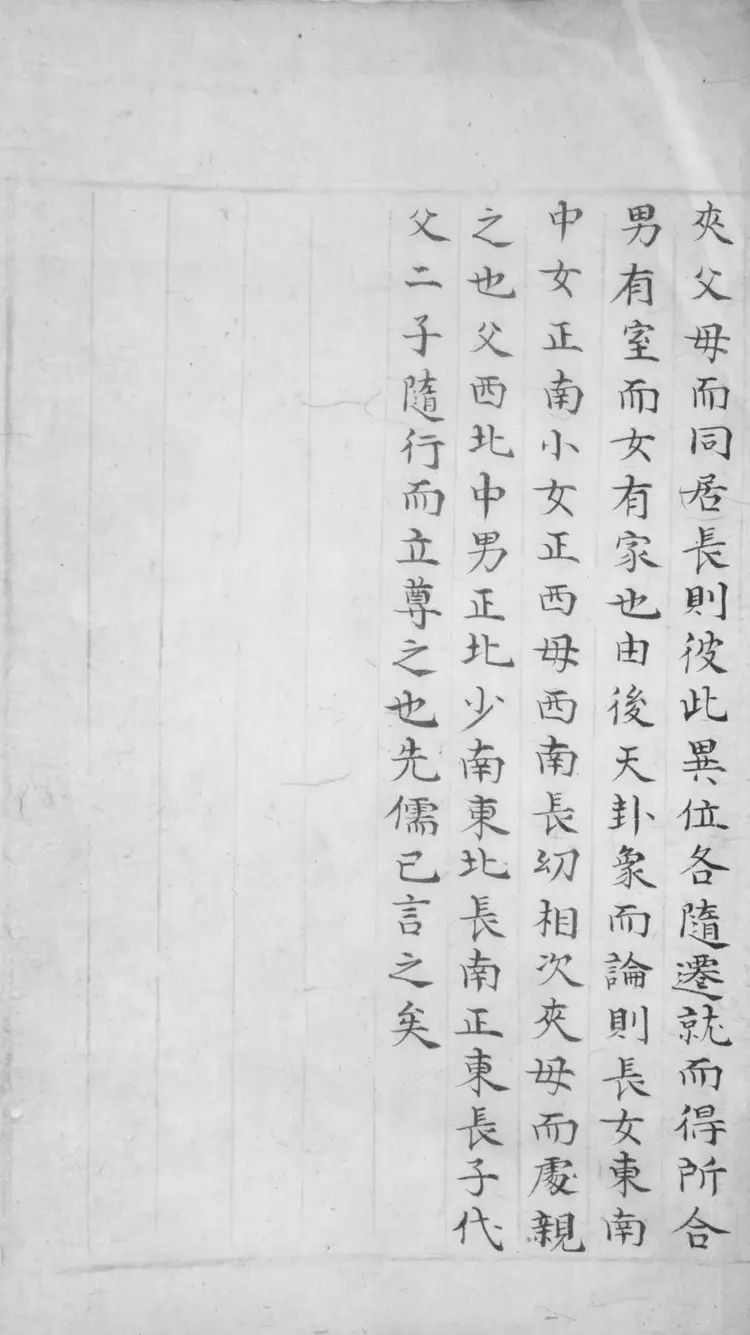 夾父母而同居長則彼此異位各隨遷就而得所合
男有室而女有家也由後天卦象而論則長女東南
中女正南小女正西母西南長幼相次夾母而處親
之也父西北中男正北少南東北長南正東長子代
父二子隨行而立尊之也先儒已言之矣